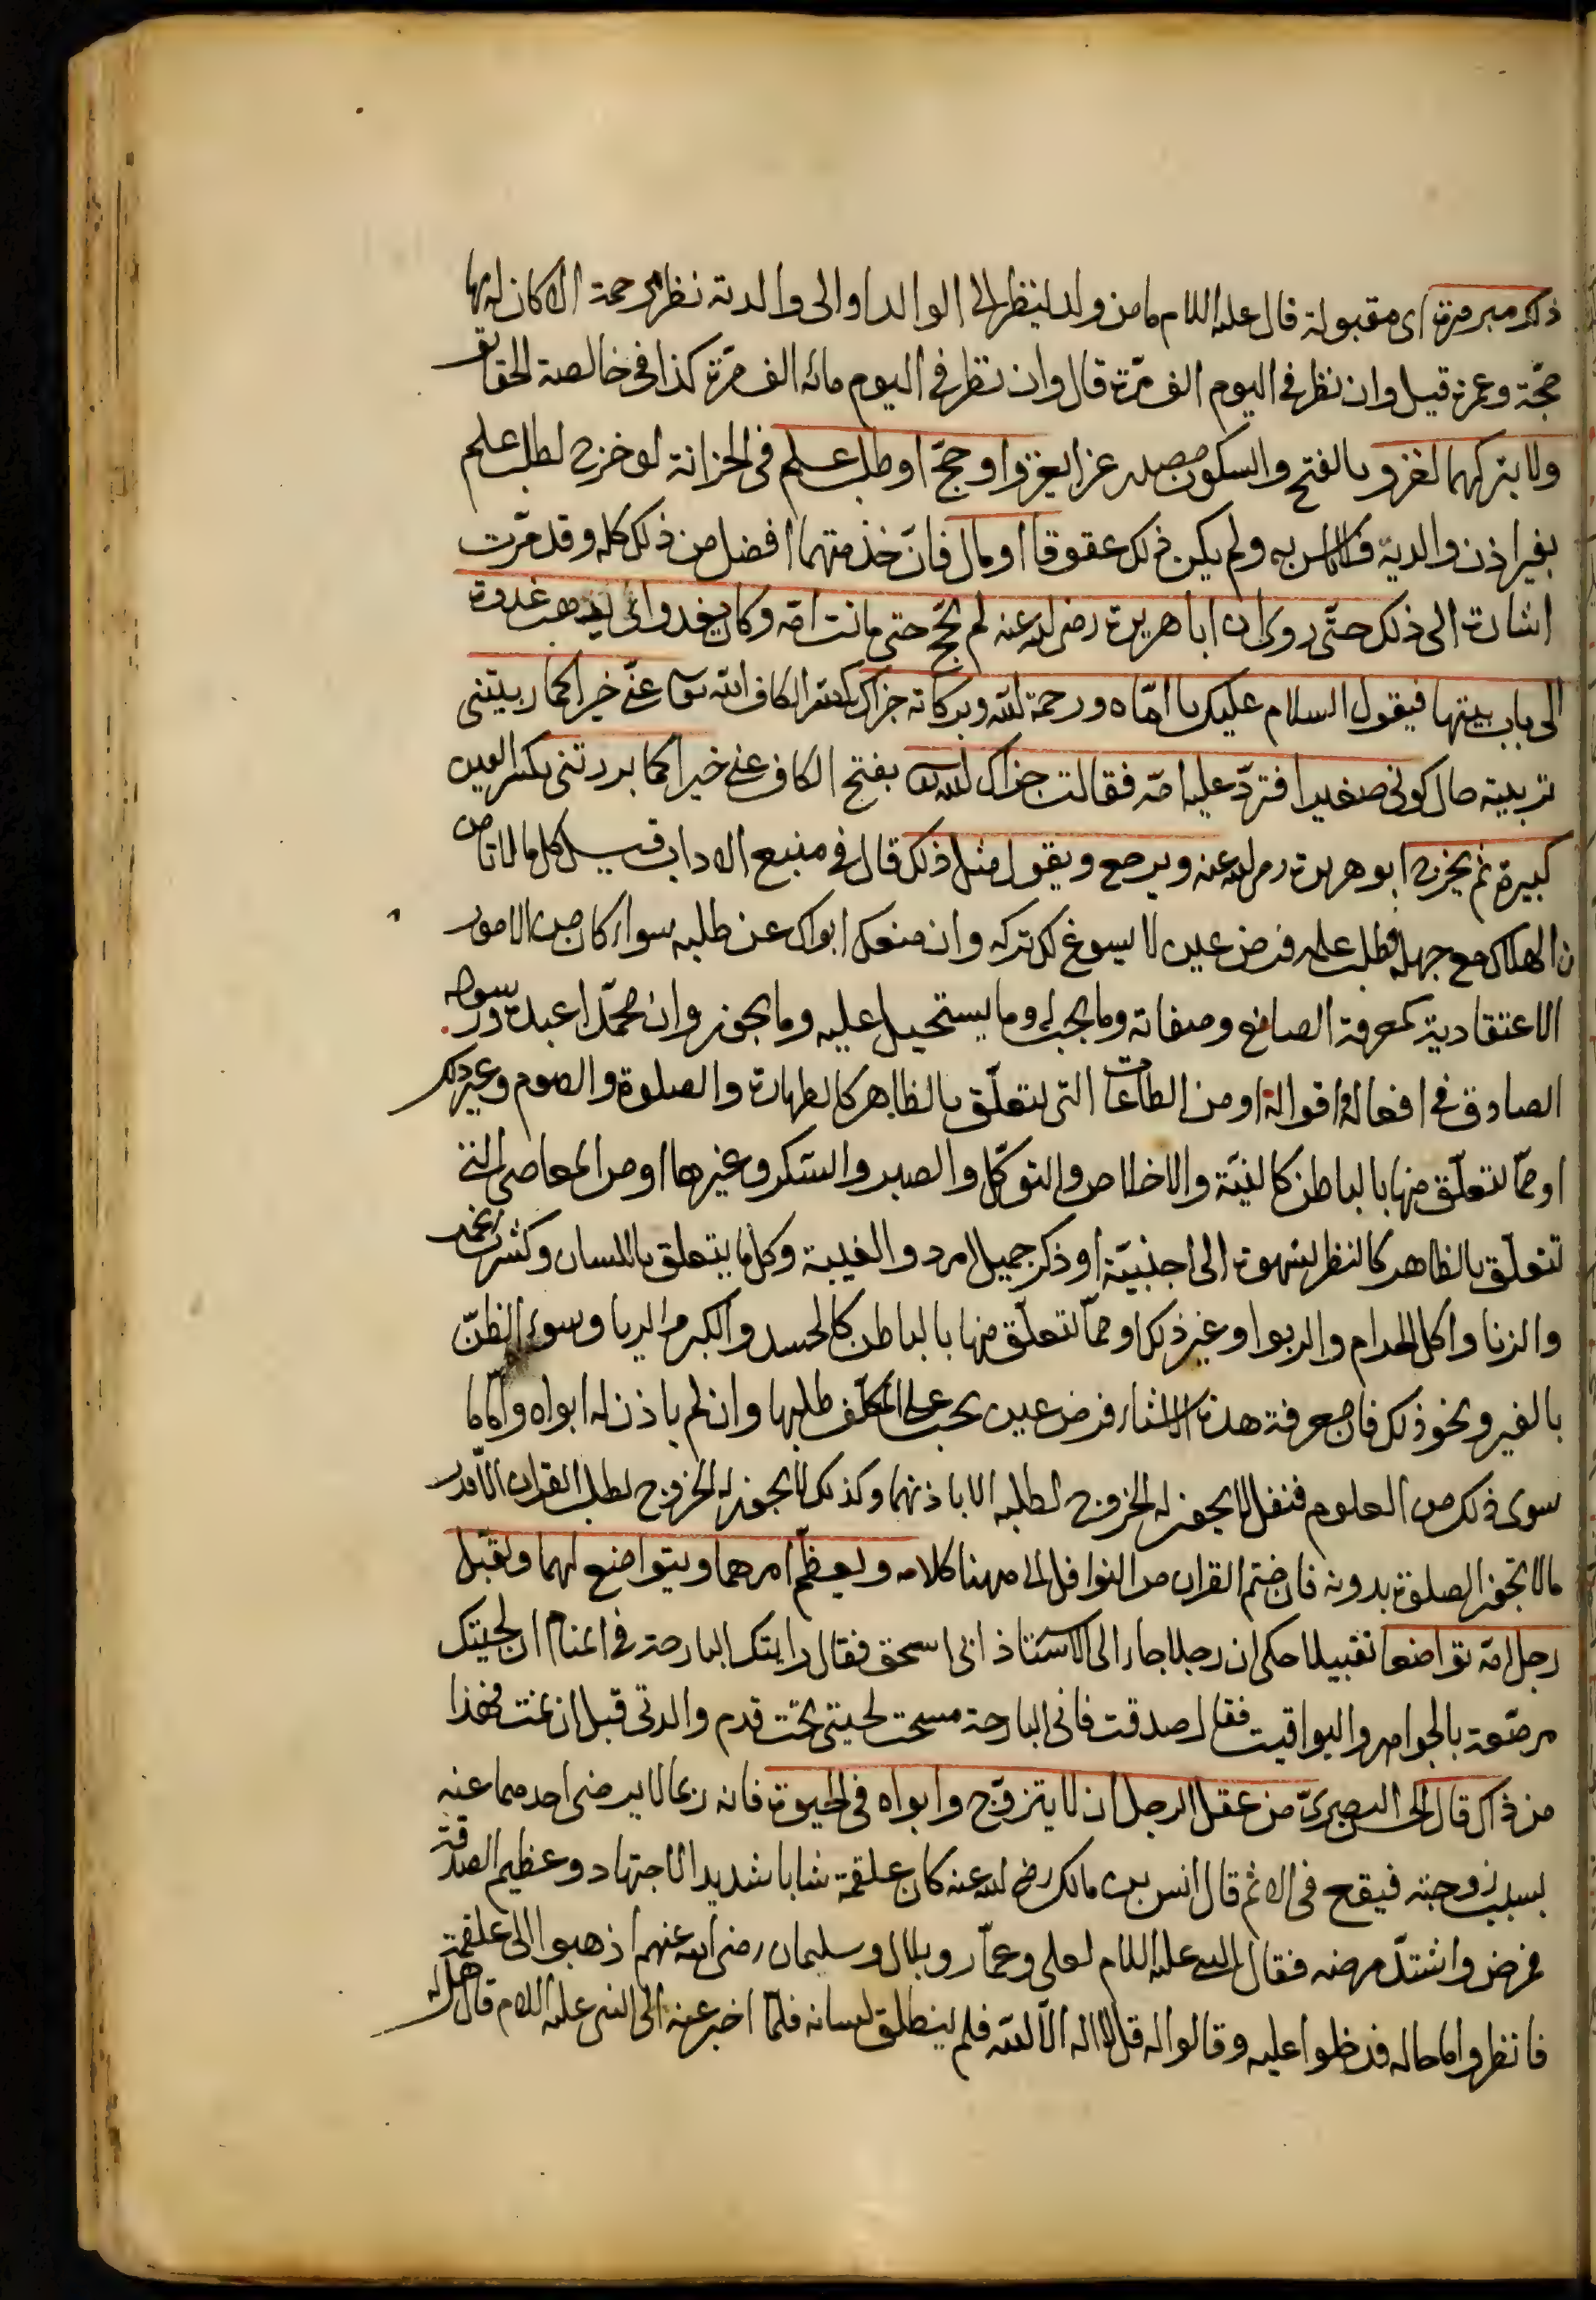 ذلك مبرورة اى مقبولة قال عليه السلام ما من ولد لينظر الى الوالد او الى والدته نظر رحمة الا كان له بها
حجة وعمرة قيل وان نظر فى اليوم الف مرّة قال وان نظر فى اليوم مائه الف مرّة كذا فى خالصة الحقايق
ولا يتركهما لغزو بالفتح والسكون مصدر غزا يغزوا وحجّ او طلب علم فى الخزانة لو خرج لطلب علم
بغير اذن والديه فلا باس به ولم يكن ذلك عقوقا او مال فانّ خذمتهما افضل من ذلك كله وقد مرّت
اشارة الى ذلك حتّى روى ان ابا هريرة رضى الله عنه لم يحجّ حتى ماتت امّه وكان يغدوا اى يذهب غدوة
الى باب بيتها فيقول السلام عليك يا امّاه ورحمة الله وبركاته جزاك بكسر الكاف الله عنّى خيرا كما ربيتنى
تربية حال كونى صغيرا فتردّ عليه امّه فقالت جزاك الله بفتح الكاف عنى خيرا كما بررتنى بكسر العين
كبيرة ثم يخرج ابو هريرة رضى الله عنه ويرجع ويقول مثل ذلك قال فى منبع الاداب قيل كل ما لا تامن
ن الهلاك مع جهله فطلب علمه فرض عين لا يسوغ لك تركه وان منعك ابواك عن طلبه سواء كان من الامور
الاعتقادية كمعرفة الصانع وصفاته وما يجب له وما يستحيل عليه وما يجوز وان محمّدا عبده ورسوله
الصادق فى افعاله واقواله او من الطاعات التى تتعلّق بالظاهر كالطهارة والصلوة والصوم وغير ذلك
او ممّا تتعلّق منها بالباطن كالنيّة والاخلاص والتوكّل والصبر والشكر وغيرها او من المعاصى التى
تتعلّق بالظاهر كالنظر بشهوة الى اجنبيّة او ذكر جميل امرد والغيبة وكل ما يتعلق باللسان وكشرب الخمر
والزنا واكل الحرام والربوا وغير ذلك او ممّا تتعلّق منها بالباطن كالحسد والكبر والريا وسوء الظنّ
بالغير ونحو ذلك فان معرفة هذه الاشياء فرض عين يجب على المكلّف طلبها وان لم ياذن له ابواه وامّا ما
سوى ذلك من العلوم فنفل لا يجوز له الخروج لطلبه الا باذنهما وكذلك لا يجوز له الخروج لطلب القران الّا قدر
ما لا تجوز الصلوة بدونه فان ختم القران من النوافل الى ههنا كلامه ويعظّم امرهما ويتواضع لهما ويقبّل
رجل امّه تواضعا تقبيلا حكى ان رجلا جاء الى الاستاذ ابى اسحق فقال رايتك البارحة فى المنام ان لحيتك
مرصّعة بالجواهر واليواقيت فقال صدقت فانى البارحة مسحت لحيتى تحت قدم والدتى قبل ان نمت فهذا
من ذاك قال الحسن البصرىّ من عقل الرجل ان لا يتزوّج وابواه فى الحيوة فانه ربما لا يرضى احدهما عنه
بسبب زوجته فيقع فى الاثم قال انس بن مالك رضى الله عنه كان علقمة شابا شديد الاجتهاد وعظيم الصدقة
فمرض واشتدّ مرضه فقال النبى عليه السلام لعلى وعمّار وبلال وسليمان رضى الله عنهم اذهبوا الى علقمة
فانظروا ما حاله فدخلوا عليه وقالوا له قل لا اله الّا الله فلم ينطلق لسانه فلمّا اخبر عنه الى النبى عليه السلام قال هل له